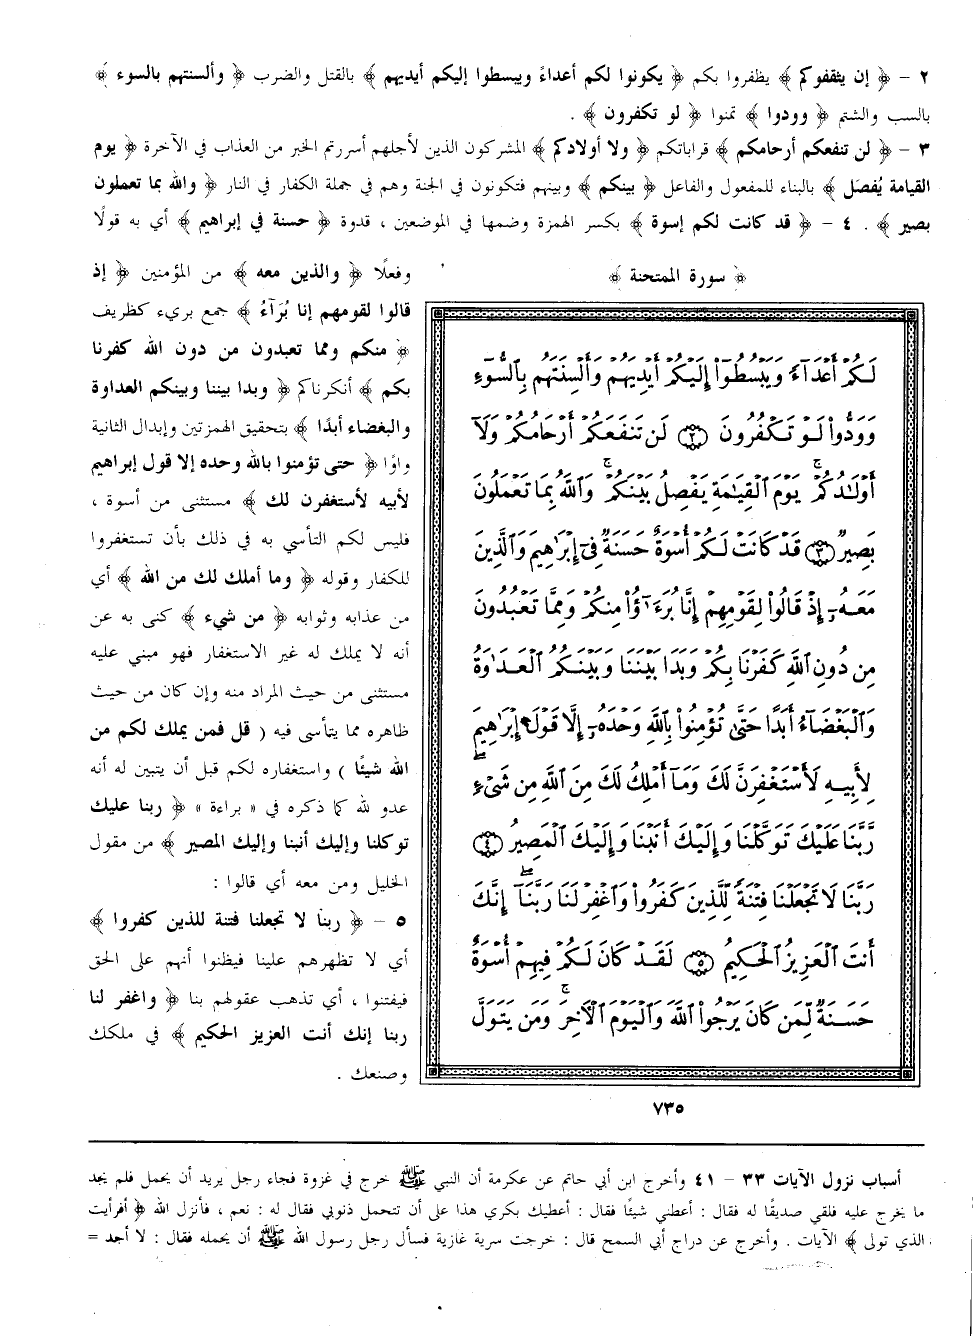 ٢ - ﴿ إن يثقفوكم ﴾ يظفروا بكم ﴿ يكونوا لكم أعداءً ويبسطوا إليكم أيديهم ﴾ بالقتل والضرب ﴿ وألسنتهم بالسوء ﴾
بالسب والشتم ﴿ وودوا ﴾ تمنوا ﴿ لو تكفرون ﴾ .
٣ - ﴿ لن تنفعكم أرحامكم ﴾ قراباتكم ﴿ ولا أولادكم ﴾ المشركون الذين لأجلهم أسررتم الخبر من العذاب في الآخرة ﴿ يوم
القيامة يُفصَل ﴾ بالبناء للمفعول والفاعل ﴿ بينكم ﴾ وبينهم فتكونون في الجنة وهم في جملة الكفار في النار ﴿ والله بما تعملون
بصير ﴾ . ٤ - ﴿ قد كانت لكم إسوة ﴾ بكسر الهمزة وضمها في الموضعين ، قدوة ﴿ حسنة في إبراهيم ﴾ أي به قولًا
وفعلًا ﴿ والذين معه ﴾ من المؤمنين ﴿ إذ
قالوا لقومهم إنا بُرَآءُ ﴾ جمع بريء كظريف
﴿ منكم ومما تعبدون من دون الله كفرنا
بكم ﴾ أنكرناكم ﴿ وبدا بيننا وبينكم العداوة
والبغضاء أبدًا ﴾ بتحقيق الهمزتين وإبدال الثانية
واوًا ﴿ حتى تؤمنوا بالله وحده إلا قول إبراهيم
لأبيه لأستغفرن لك ﴾ مستثنى من أسوة ،
فليس لكم التأسي به في ذلك بأن تستغفروا
للكفار وقوله ﴿ وما أملك لك من الله ﴾ أي
من عذابه وثوابه ﴿ من شيء ﴾ كنى به عن
أنه لا يملك له غير الاستغفار فهو مبني عليه
مستثنى من حيث المراد منه وإن كان من حيث
ظاهره مما يتأسى فيه ( قل فمن يملك لكم من
الله شيئًا ) واستغفاره لكم قبل أن يتبين له أنه
عدو لله كما ذكره في « براءة » ﴿ ربنا عليك
توكلنا وإليك أنبنا وإليك المصير ﴾ من مقول
الخليل ومن معه أي قالوا :
٥ - ﴿ ربنا لا تجعلنا فتنة للذين كفروا ﴾
أي لا تظهرهم علينا فيظنوا أنهم على الحق
فيفتنوا ، أي تذهب عقولهم بنا ﴿ واغفر لنا
ربنا إنك أنت العزيز الحكيم ﴾ في ملكك
وصنعك .
﴿ سورة الممتحنة ﴾
لَكُمْ أَعْدَآءً وَيَبْسُطُوٓا۟ إِلَيْكُمْ أَيْدِيَهُمْ وَأَلْسِنَتَهُم بِٱلسُّوٓءِ
وَوَدُّوا۟ لَوْ تَكْفُرُونَ ۝٢ لَن تَنفَعَكُمْ أَرْحَامُكُمْ وَلَآ
أَوْلَـٰدُكُمْ ۚ يَوْمَ ٱلْقِيَـٰمَةِ يَفْصِلُ بَيْنَكُمْ ۚ وَٱللَّهُ بِمَا تَعْمَلُونَ
بَصِيرٌ ۝٣ قَدْ كَانَتْ لَكُمْ أُسْوَةٌ حَسَنَةٌ فِىٓ إِبْرَٰهِيمَ وَٱلَّذِينَ
مَعَهُۥٓ إِذْ قَالُوا۟ لِقَوْمِهِمْ إِنَّا بُرَءَٰٓؤُا۟ مِنكُمْ وَمِمَّا تَعْبُدُونَ
مِن دُونِ ٱللَّهِ كَفَرْنَا بِكُمْ وَبَدَا بَيْنَنَا وَبَيْنَكُمُ ٱلْعَدَٰوَةُ
وَٱلْبَغْضَآءُ أَبَدًا حَتَّىٰ تُؤْمِنُوا۟ بِٱللَّهِ وَحْدَهُۥٓ إِلَّا قَوْلَ إِبْرَٰهِيمَ
لِأَبِيهِ لَأَسْتَغْفِرَنَّ لَكَ وَمَآ أَمْلِكُ لَكَ مِنَ ٱللَّهِ مِن شَىْءٍ ۖ
رَّبَّنَا عَلَيْكَ تَوَكَّلْنَا وَإِلَيْكَ أَنَبْنَا وَإِلَيْكَ ٱلْمَصِيرُ ۝٤
رَبَّنَا لَا تَجْعَلْنَا فِتْنَةً لِّلَّذِينَ كَفَرُوا۟ وَٱغْفِرْ لَنَا رَبَّنَآ ۖ إِنَّكَ
أَنتَ ٱلْعَزِيزُ ٱلْحَكِيمُ ۝٥ لَقَدْ كَانَ لَكُمْ فِيهِمْ أُسْوَةٌ
حَسَنَةٌ لِّمَن كَانَ يَرْجُوا۟ ٱللَّهَ وَٱلْيَوْمَ ٱلْـَٔاخِرَ ۚ وَمَن يَتَوَلَّ
٧٣٥
أسباب نزول الآيات ٣٣ - ٤١ وأخرج ابن أبي حاتم عن عكرمة أن النبي ﷺ خرج في غزوة فجاء رجل يريد أن يحمل فلم يجد
ما يخرج عليه فلقي صديقًا له فقال : أعطني شيئًا فقال : أعطيك بكري هذا على أن تتحمل ذنوبي فقال له : نعم ، فأنزل الله ﴿ أفرأيت
الذي تولى ﴾ الآيات . وأخرج عن دراج أبي السمح قال : خرجت سرية غازية فسأل رجل رسول الله ﷺ أن يحمله فقال : لا أجد =